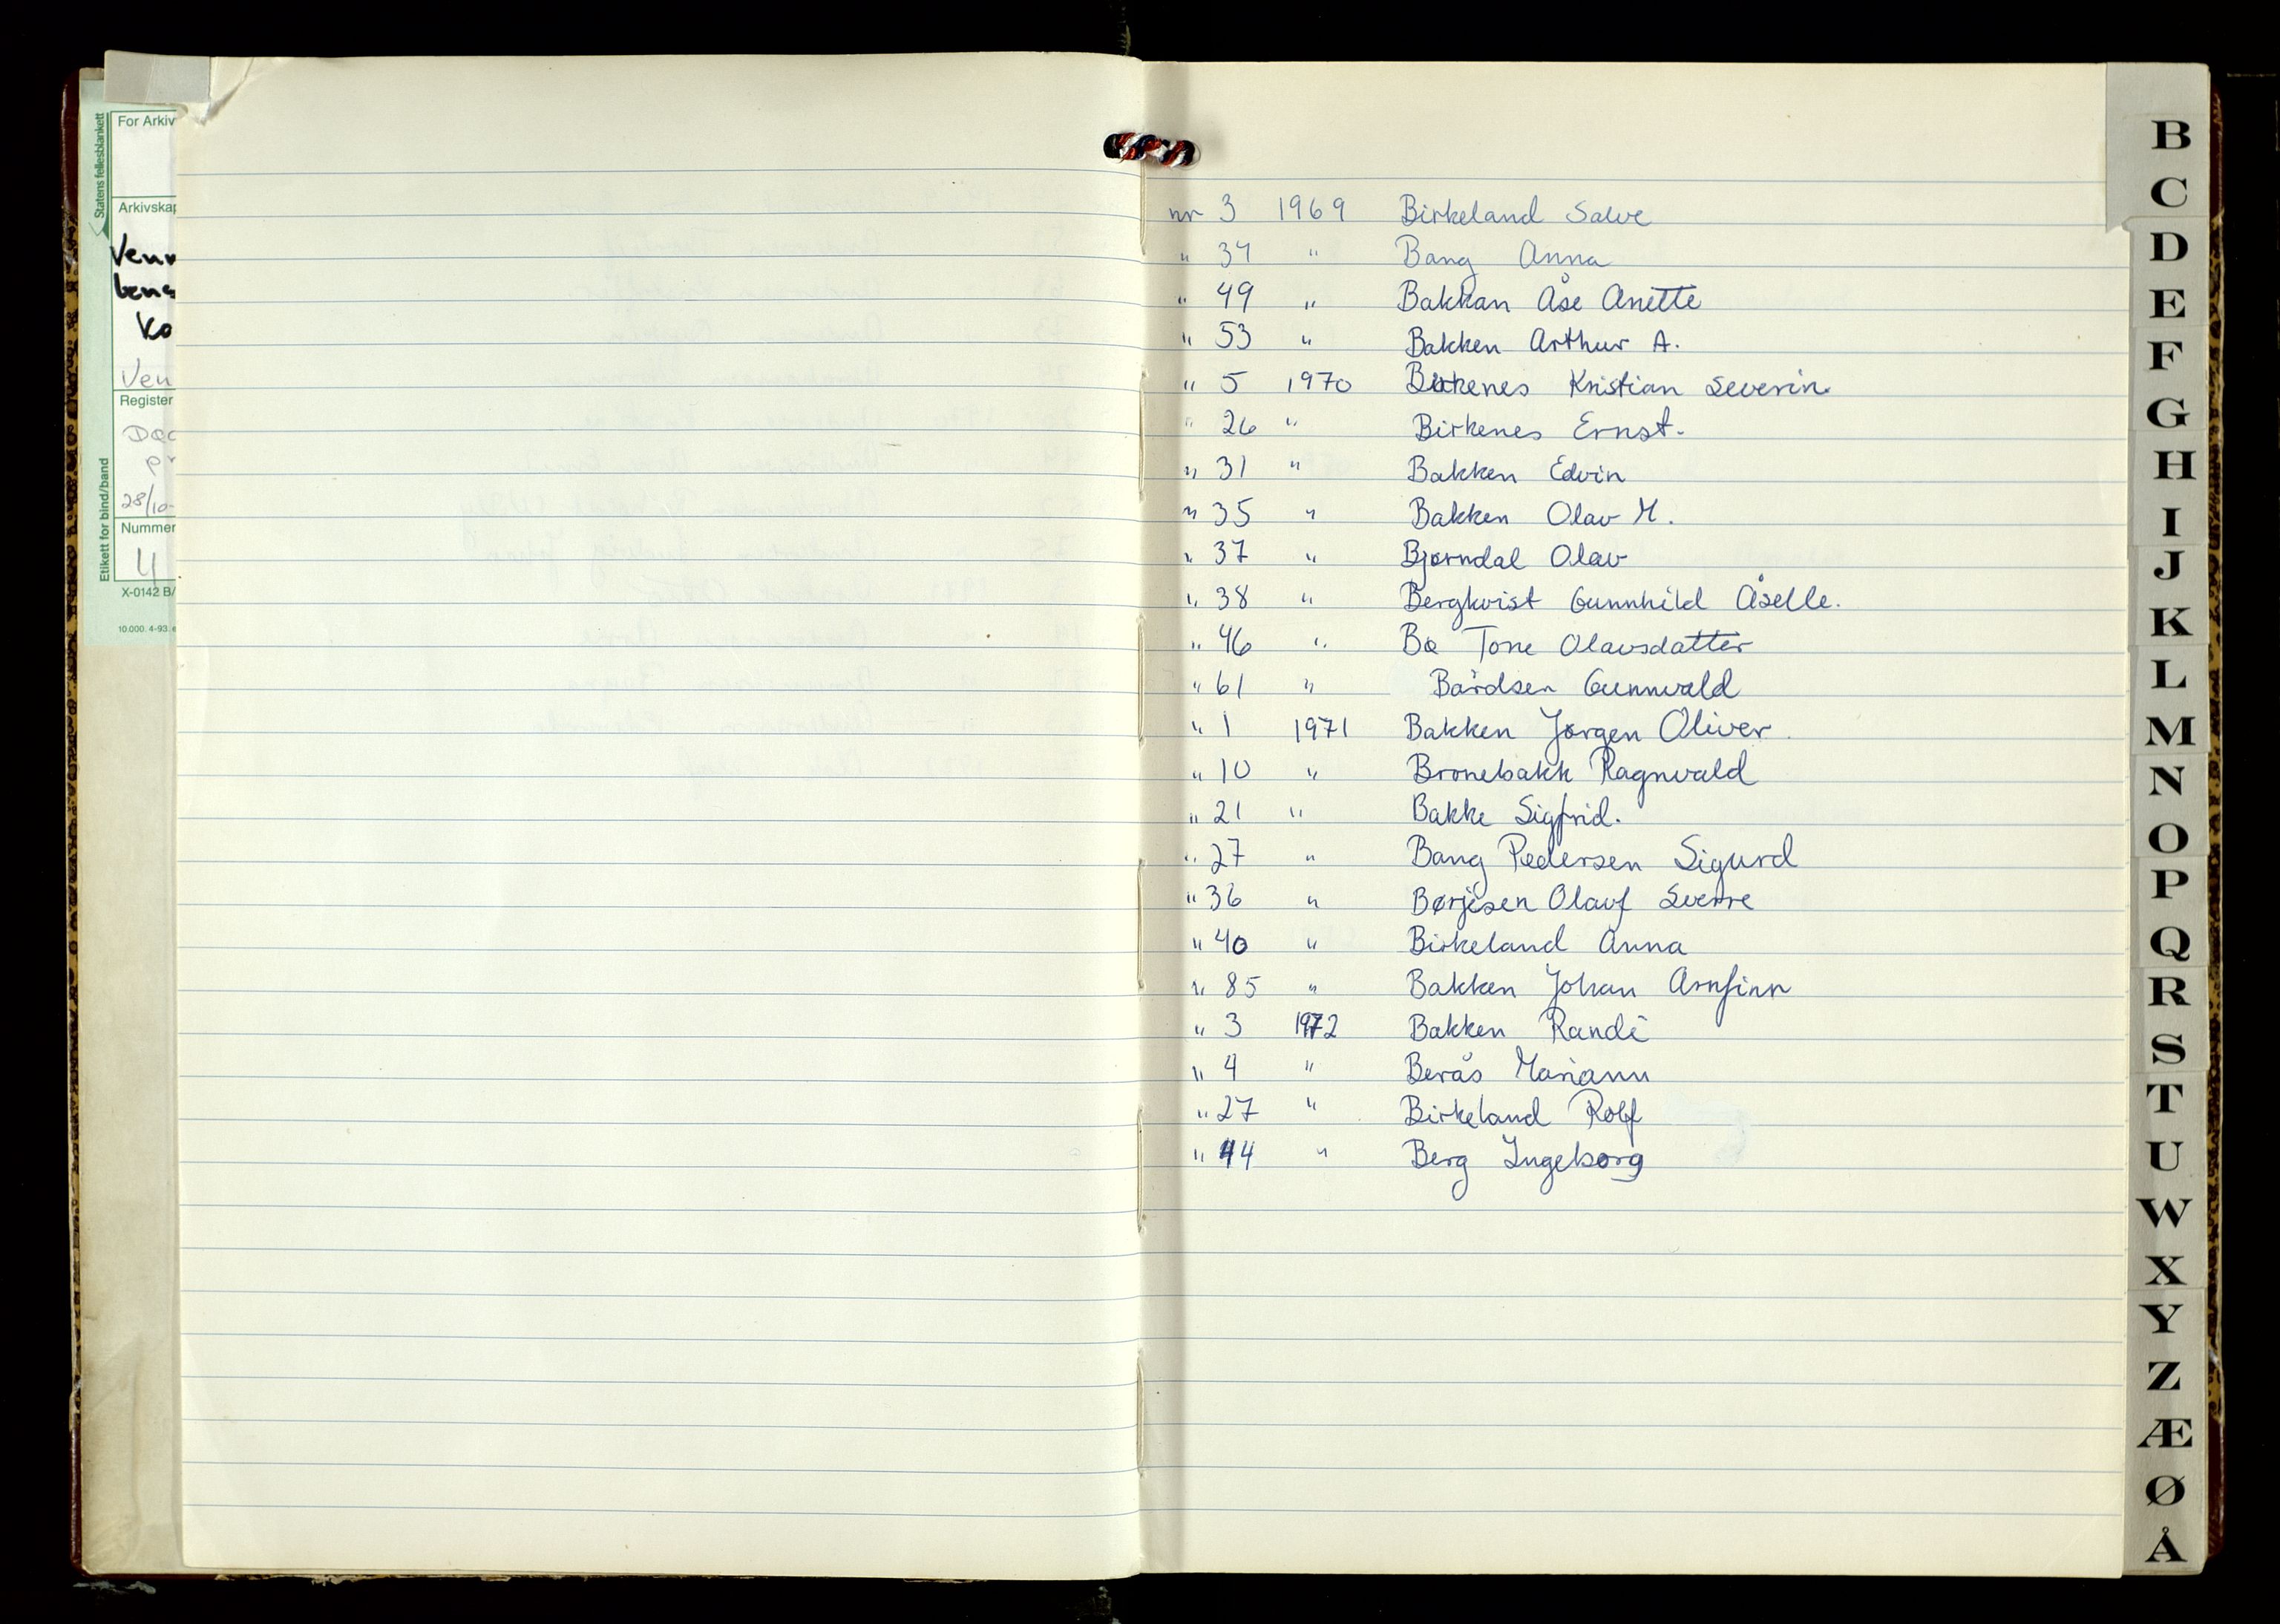 For Arkiv
Statens fellesblankett
Arkivskap
Ko
Ven
Register
28/10-
Etikett for bind/band
Nummer
4
X-0142 B/
10.000. 4-93.
nr 3 1969 Birkeland Salve
" 34 " Bang Anna
" 49 " Bakkan Åse Anette
" 53 " Bakken Arthur A.
" 5 1970 Kristian Severin
" 26 " Birkenes Ernst.
" 31 " Bakken Edvin
" 35 " Bakken Olav M.
" 37 " Bjørndal Olav
" 38 " Bergkvist Gunnhild Åselle.
" 46 " Bø Tone Olavsdatter
" 61 " Bårdsen Gunnvald
" 1 1971 Bakken Jørgen Oliver
" 10 " Bronebakk Ragnvald
" 21 " Bakke Sigfrid.
" 27 " Bang Pedersen Sigurd
" 36 " Børjesen Olauf Sverre
" 40 " Birkeland Anna
" 85 " Bakken Johan Arnfinn
" 3 1972 Bakken Randi
" 4 " Berås Mariann
" 27 " Birkeland Rolf
" 44 " Berg Ingeborg
B
C
D
E
F
G
H
I
J
K
L
M
N
O
P
Q
R
S
T
U
W
X
Y
Z
Æ
Ø
Å